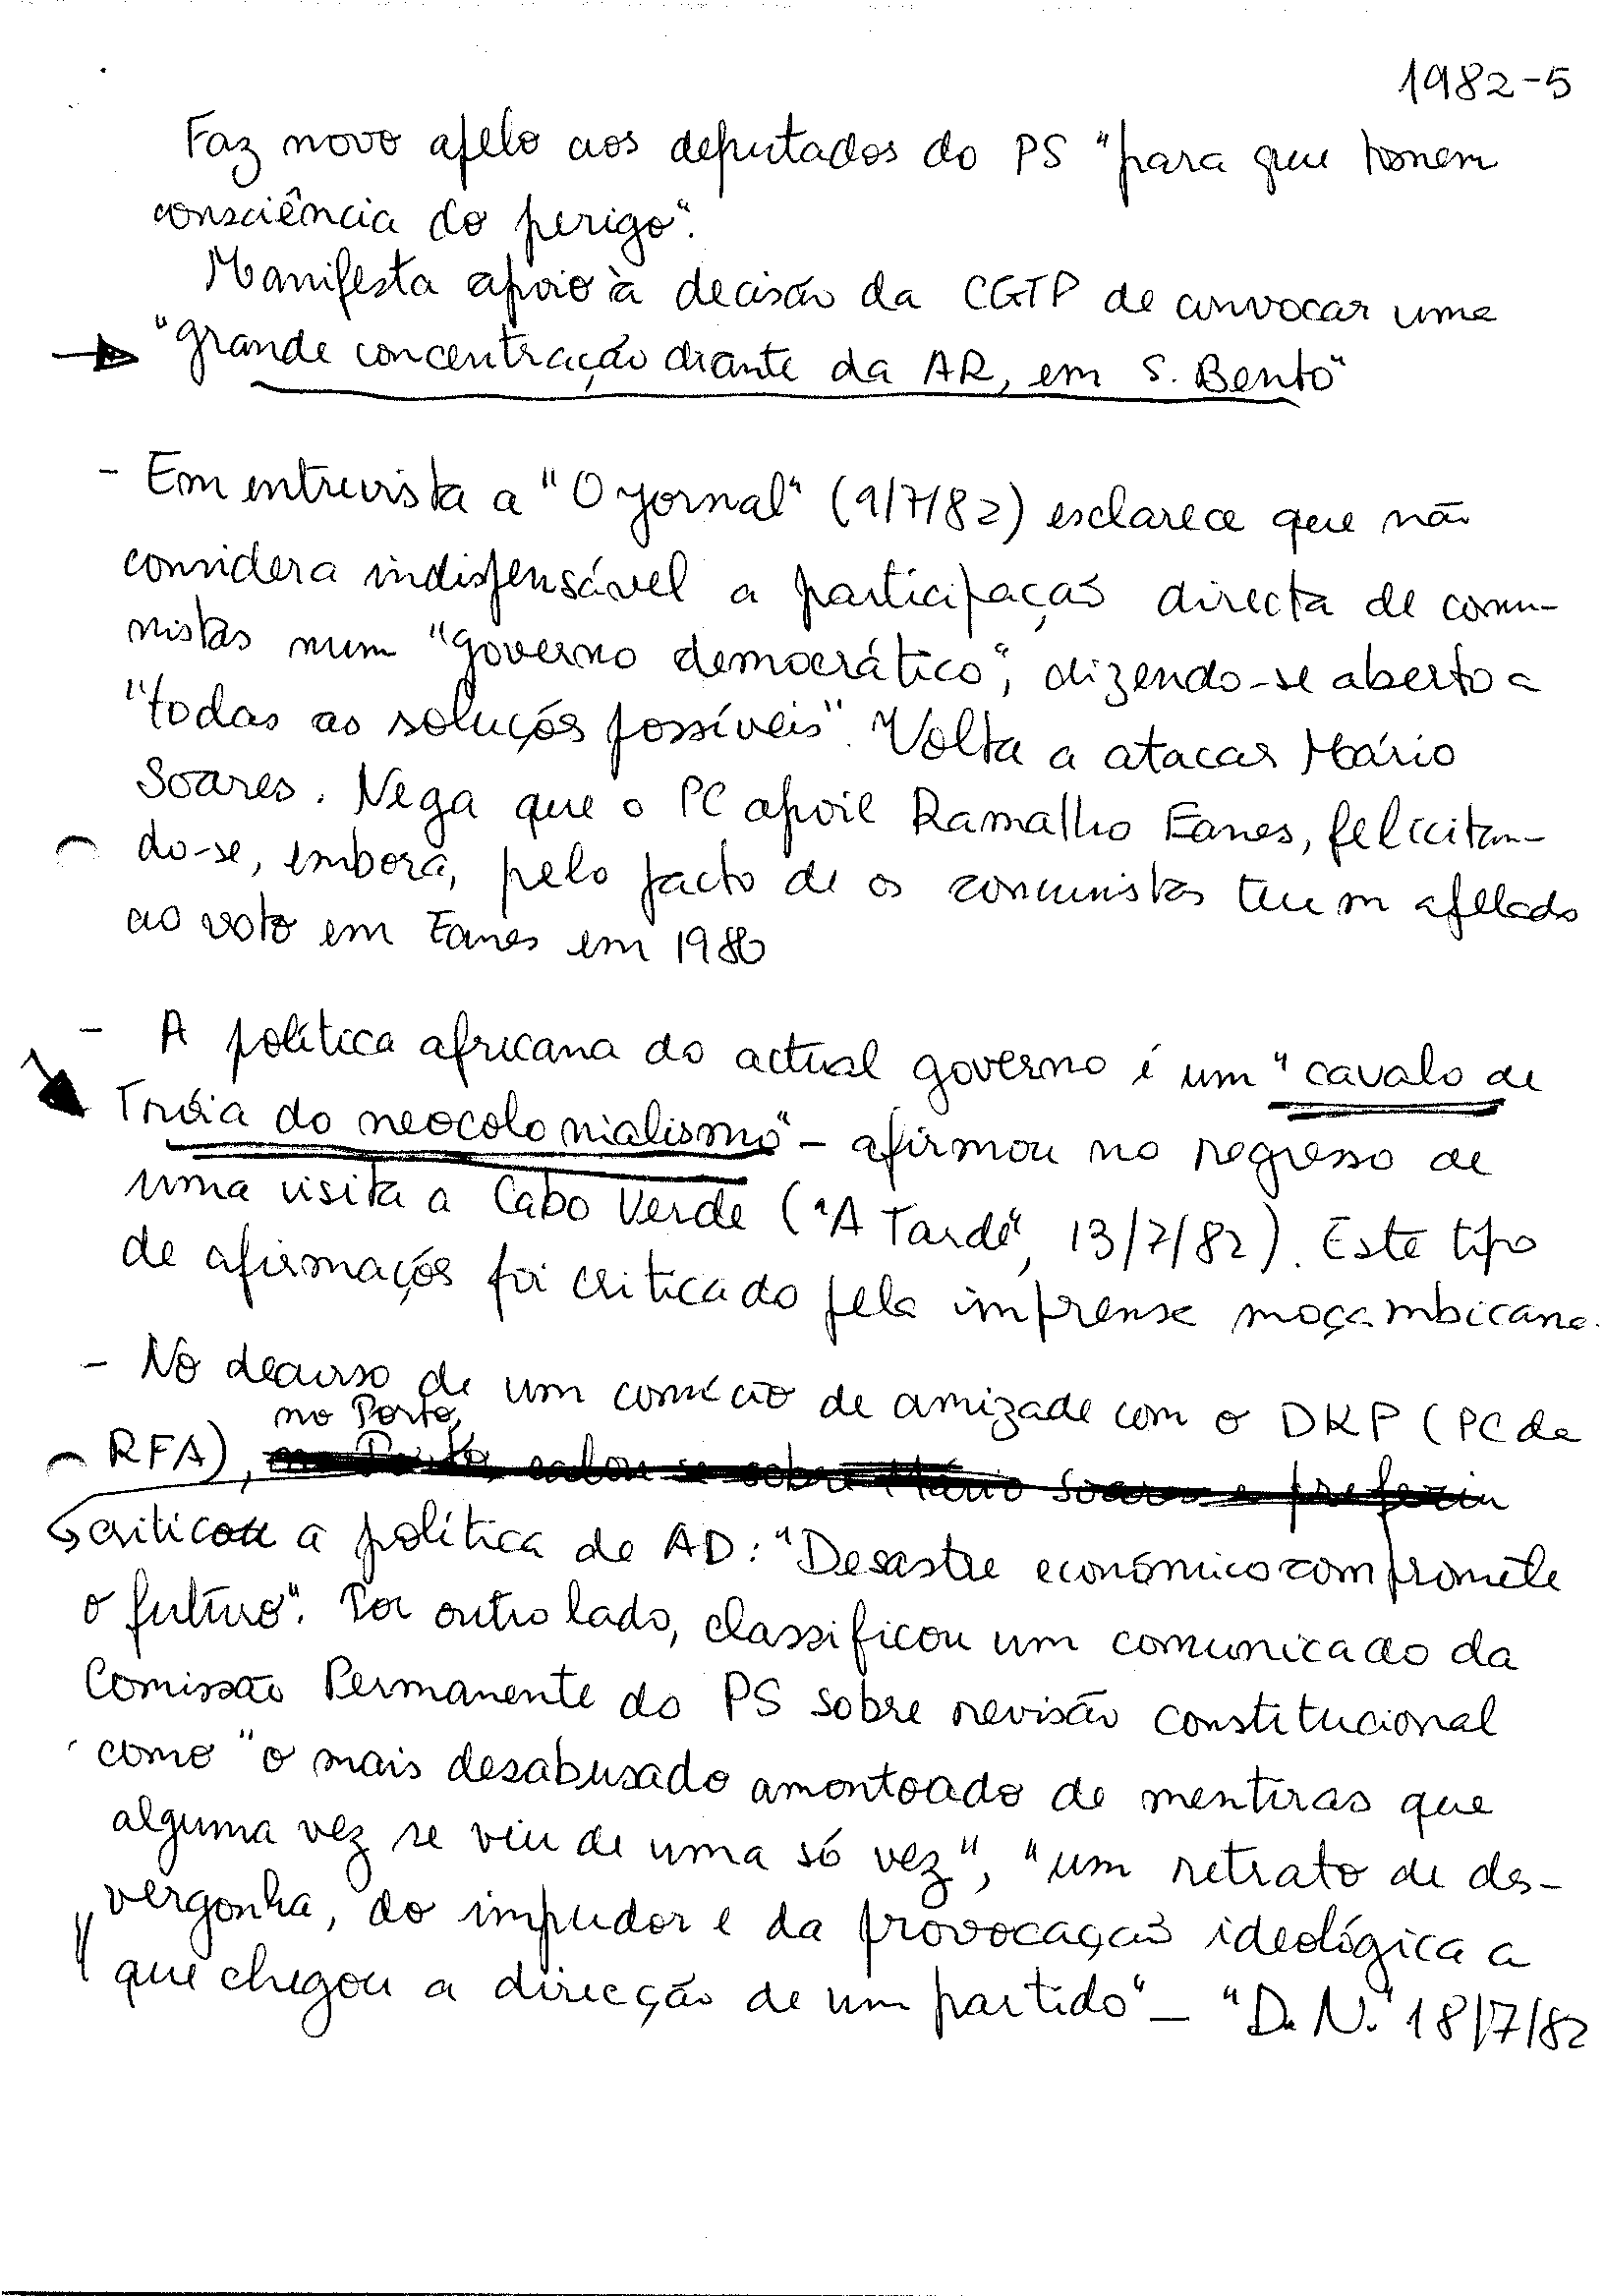 1982-5
Faz novo apelo aos deputados do PS "para que tomem
consciência do perigo".
Manifesta apoio à decisão da CGTP de convocar uma
"grande concentração diante da AR, em S. Bento"
- Em entrevista a "O Jornal" (9/7/82) esclarece que não
considera indispensável a participação directa de comu-
nistas num "governo democrático", dizendo-se aberto a
"todas as soluções possíveis". Volta a atacar Mário
Soares. Nega que o PC apoie Ramalho Eanes, felicitan-
do-se, embora, pelo facto de os comunistas terem apelado
ao voto em Eanes em 1980
- A política africana do actual governo é um "cavalo de
Tróia do neocolonialismo" - afirmou no regresso de
uma visita a Cabo Verde ("A Tarde", 13/7/82). Este tipo
de afirmações foi criticado pela imprensa moçambicana.
- No decurso de um comício de amizade com o DKP (PC da
no Porto,
RFA), no Porto, calou-se sobre Mário Soares e preferiu
criticou a política de AD: "Desastre económico compromete
o futuro". Por outro lado, classificou um comunicado da
Comissão Permanente do PS sobre revisão constitucional
como "o mais desabusado amontoado de mentiras que
alguma vez se viu de uma só vez", "um retrato de des-
vergonha, do impudor e da provocação ideológica a
que chegou a direcção de um partido" - "D.N." 18/7/82